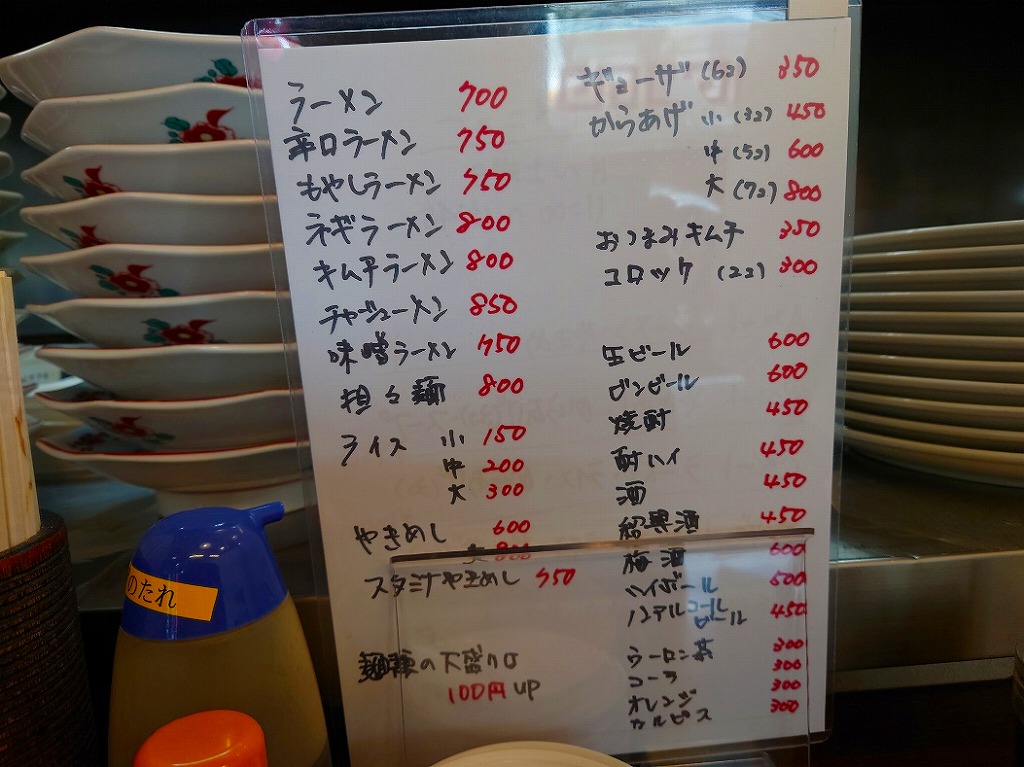 ラーメン 700
辛口ラーメン 750
もやしラーメン 750
ネギラーメン 800
キムチラーメン 800
チャーシューメン 850
味噌ラーメン 750
担々麺 800
ライス 小 150
中 200
大 300
やきめし 600
大 800
スタミナやきめし 750
麺類の大盛りは
100円 UP
ギョーザ (6コ) 350
からあげ 小 (3コ) 450
中 (5コ) 600
大 (7コ) 800
おつまみキムチ 350
コロッケ (2コ) 300
生ビール 600
ビンビール 600
焼酎 450
酎ハイ 450
酒 450
紹興酒 450
梅酒 600
ハイボール 500
ノンアルコールビール 450
ウーロン茶 300
コーラ 300
オレンジ 300
カルピス 300
のたれ